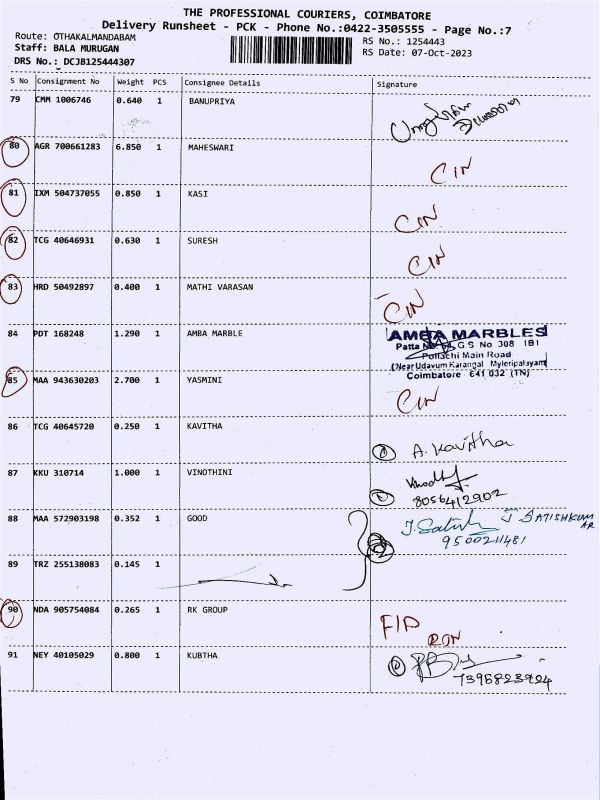 THE PROFESSIONAL COURIERS, COIMBATORE
Delivery Runsheet - PCK - Phone No.:0422-3505555 - Page No.:7
Route: OTHAKALMANDABAM
RS No.: 1254443
Staff: BALA MURUGAN
RS Date: 07-Oct-2023
DRS No.: DCJB125444307
S No Consignment No Weight PCS Consignee Details Signature
79 CMM 1006746 0.640 1 BANUPRIYA
80 AGR 700661283 6.850 1 MAHESWARI
CIN
81 IXM 504737055 0.850 1 KASI
CIN
82 TCG 40646931 0.630 1 SURESH
CIN
83 HRD 50492897 0.400 1 MATHI VARASAN
CIN
84 PDT 168248 1.290 1 AMBA MARBLE
AMBA MARBLES
Patta G S No 308 1B1
Pollachi Main Road
(Near Udavum Karangal Myleripalayam)
Coimbatore 641 032 (TN)
85 MAA 943630203 2.700 1 YASMINI
CIN
86 TCG 40645720 0.250 1 KAVITHA
A. Kavitha
87 KKU 310714 1.000 1 VINOTHINI
8056412902
88 MAA 572903198 0.352 1 GOOD
J. Satish J SATISHKUMAR
9500211481
89 TRZ 255138083 0.145 1
90 NDA 905754084 0.265 1 RK GROUP
91 NEY 40105029 0.800 1 KUBTHA
7395823924